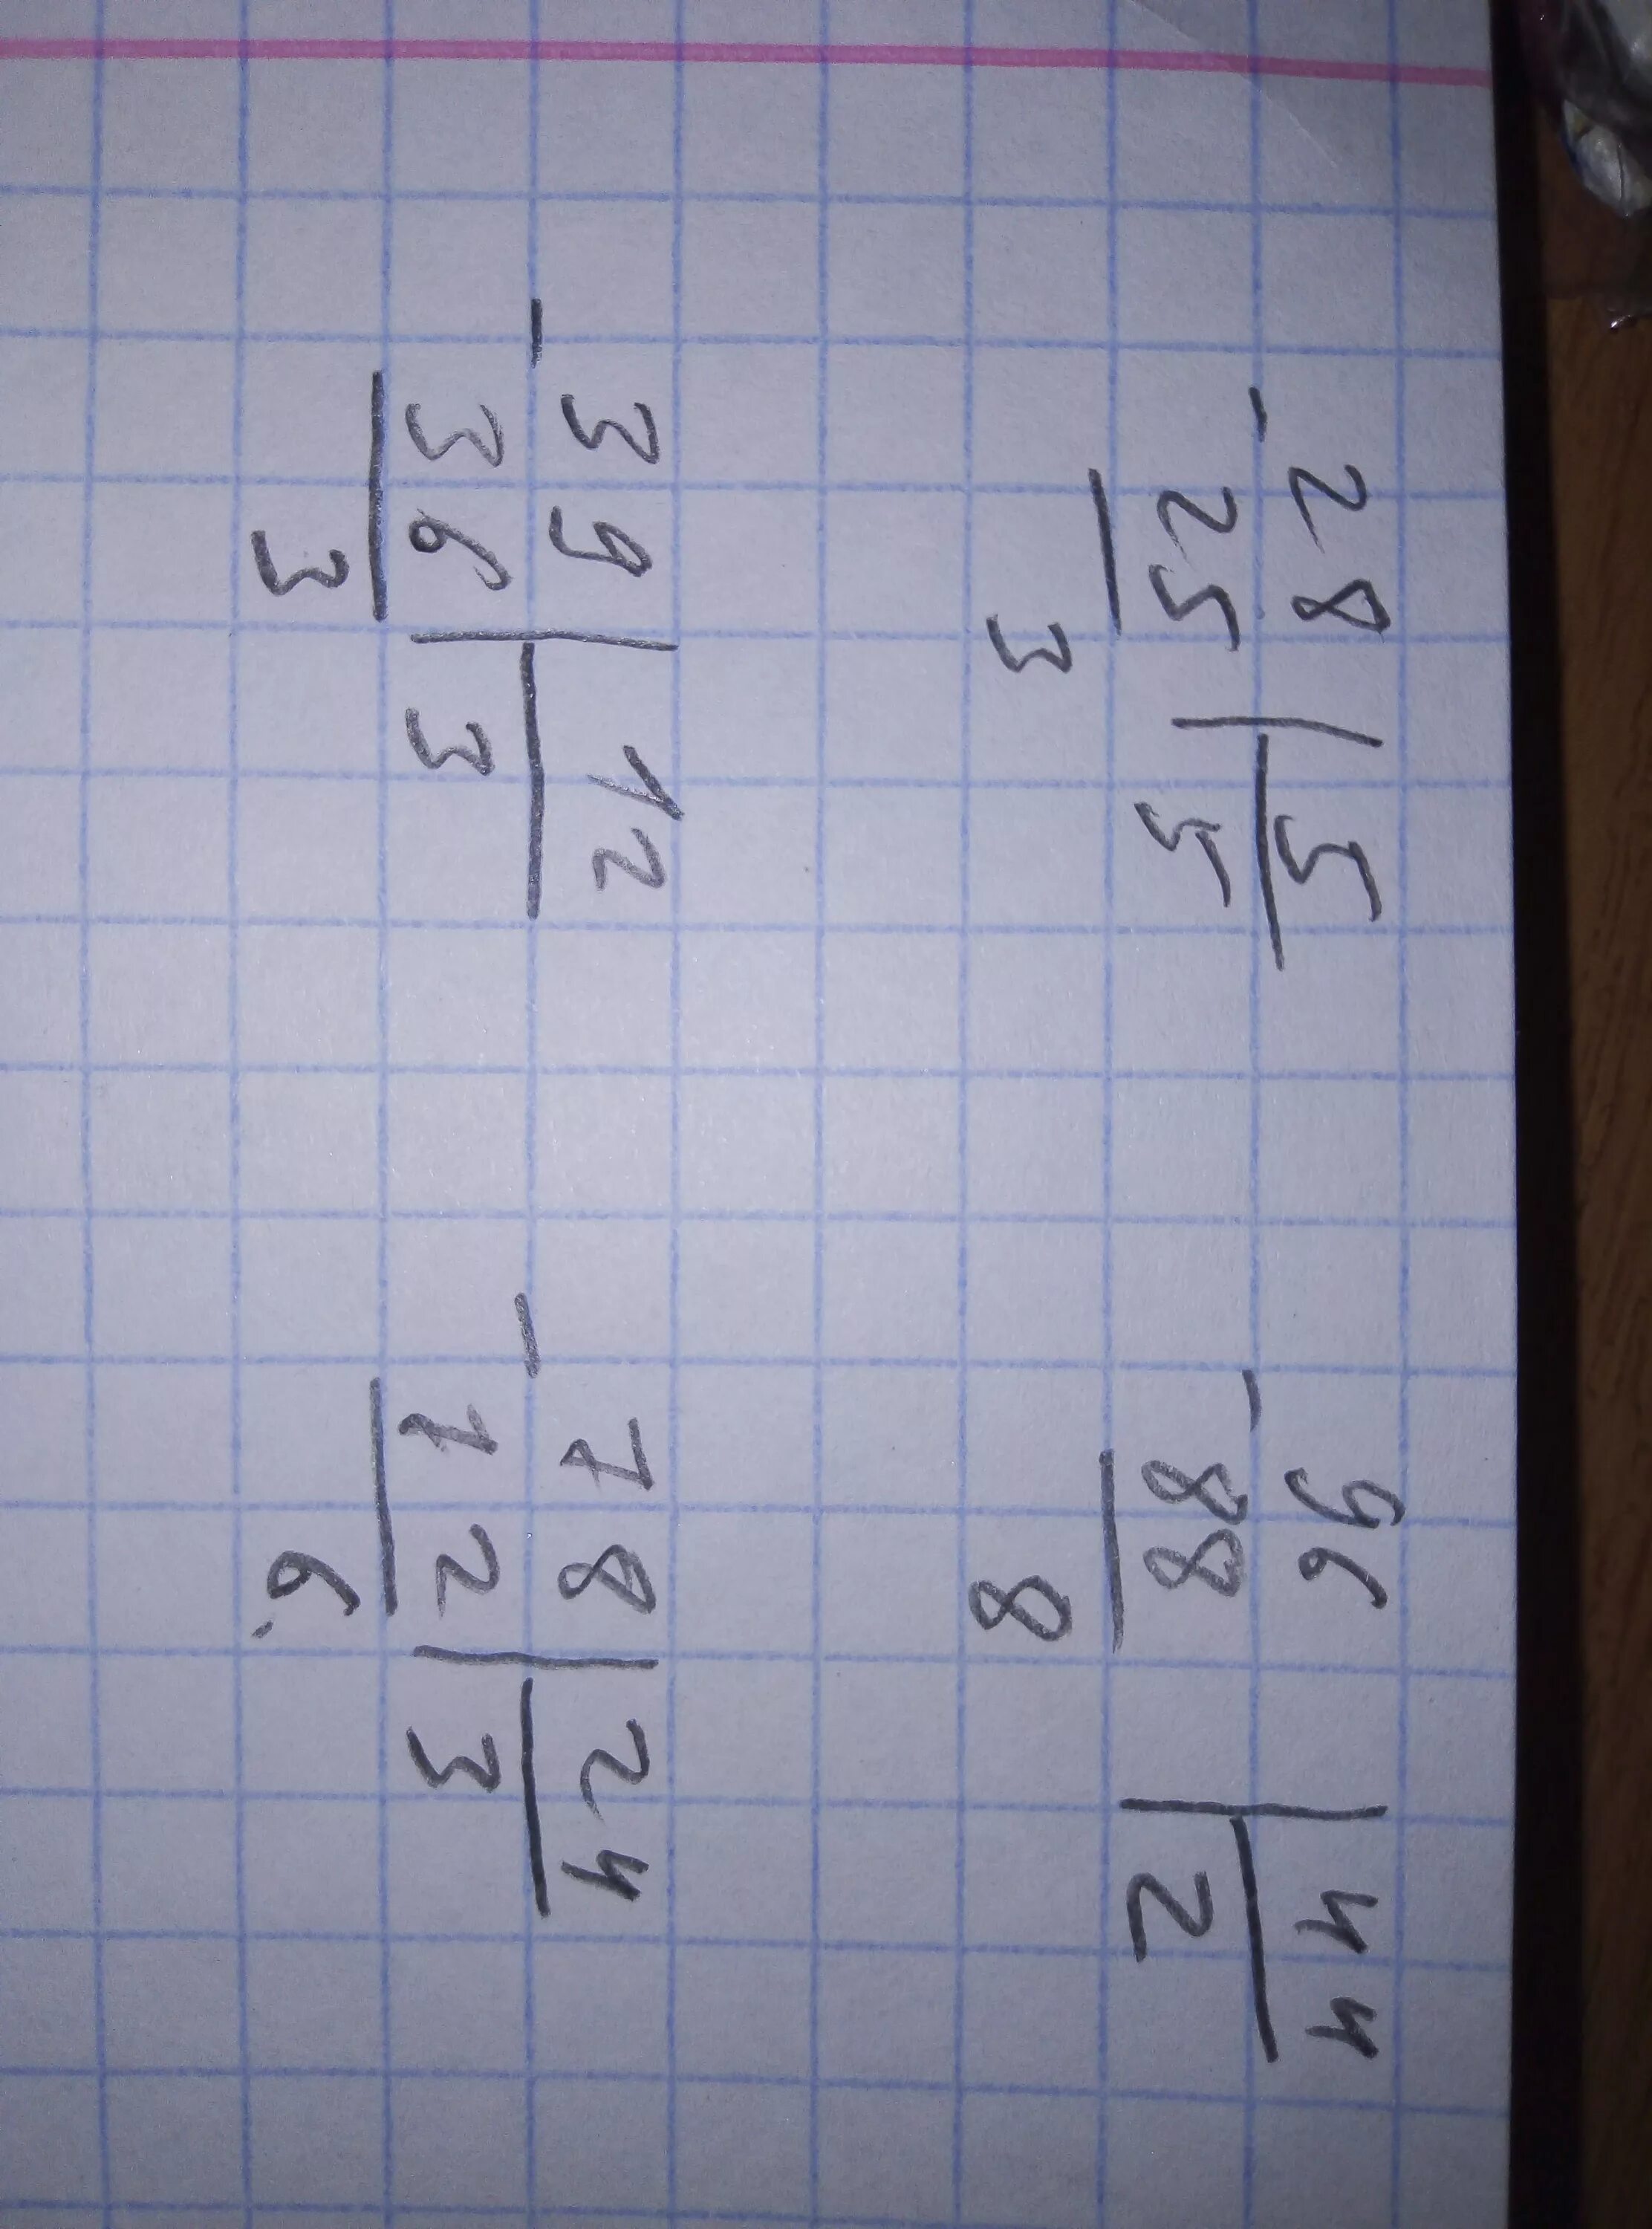 - 28 | 5
25 | 5
3
- 96 | 44
88 | 2
8
- 39 | 12
36 | 3
3
- 78 | 24
72 | 3
6